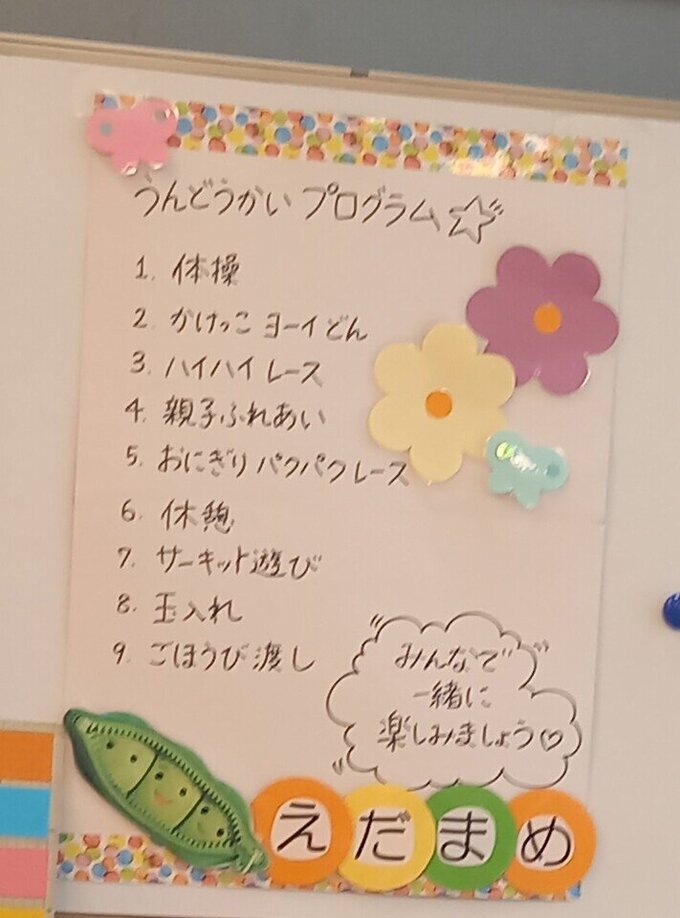 うんどうかい プログラム☆
1. 体操
2. かけっこ ヨーイどん
3. ハイハイレース
4. 親子ふれあい
5. おにぎりパクパクレース
6. 休憩
7. サーキット遊び
8. 玉入れ
9. ごほうび渡し
みんなで
一緒に
楽しみましょう♡
えだまめ